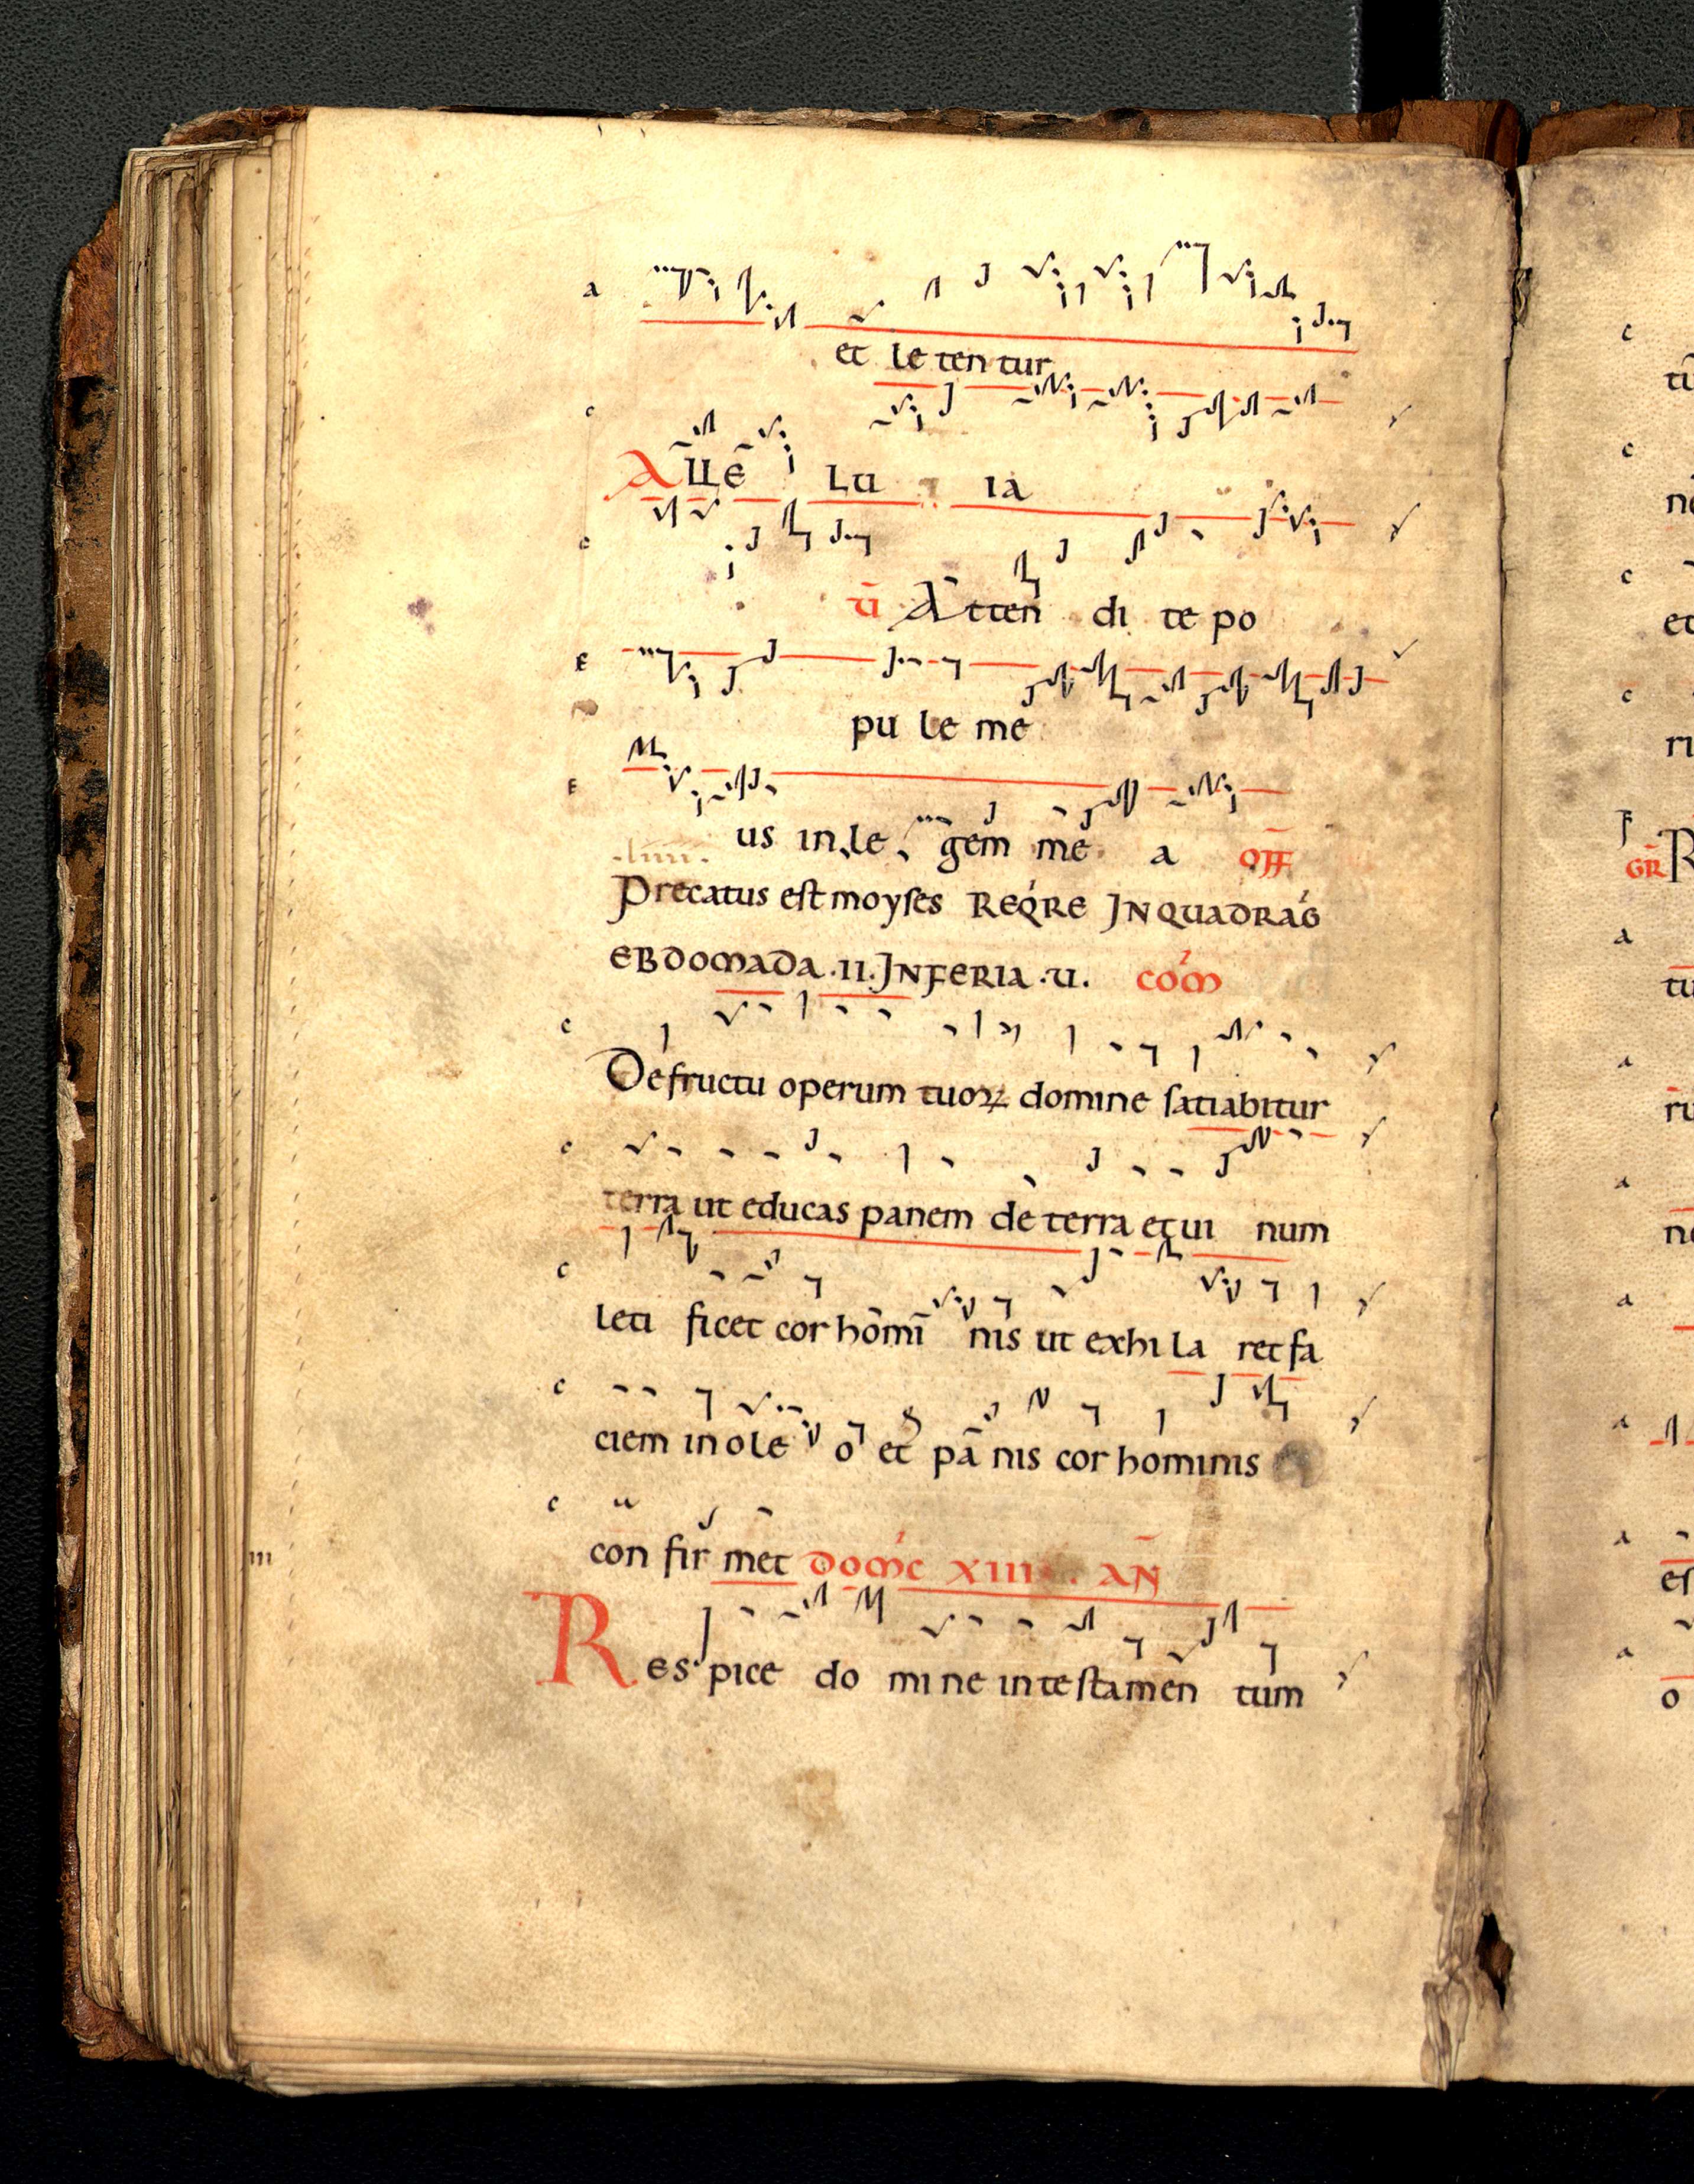 a
et le ten tur
c
Alle lu ia
c
ū Atten di te po
F
pu le me
F
us in le gem me a off
.liiii.
Precatus est moyses REQRE IN QUADRAG
EBDOMADA .II. IN FERIA .U. com
c
De fructu operum tuoꝝ domine satiabitur
c
terra ut educas panem de terra et ui num
c
leti ficet cor homi nis ut exhi la ret fa
c
ciem in ole o et pa nis cor hominis
c
con fir met DOMC XIII . AN
III
Res pice do mi ne in testamen tum
c
tu
c
c
et
c
ri
F
GR R
a
tu
a
a
a
a
a
a
o